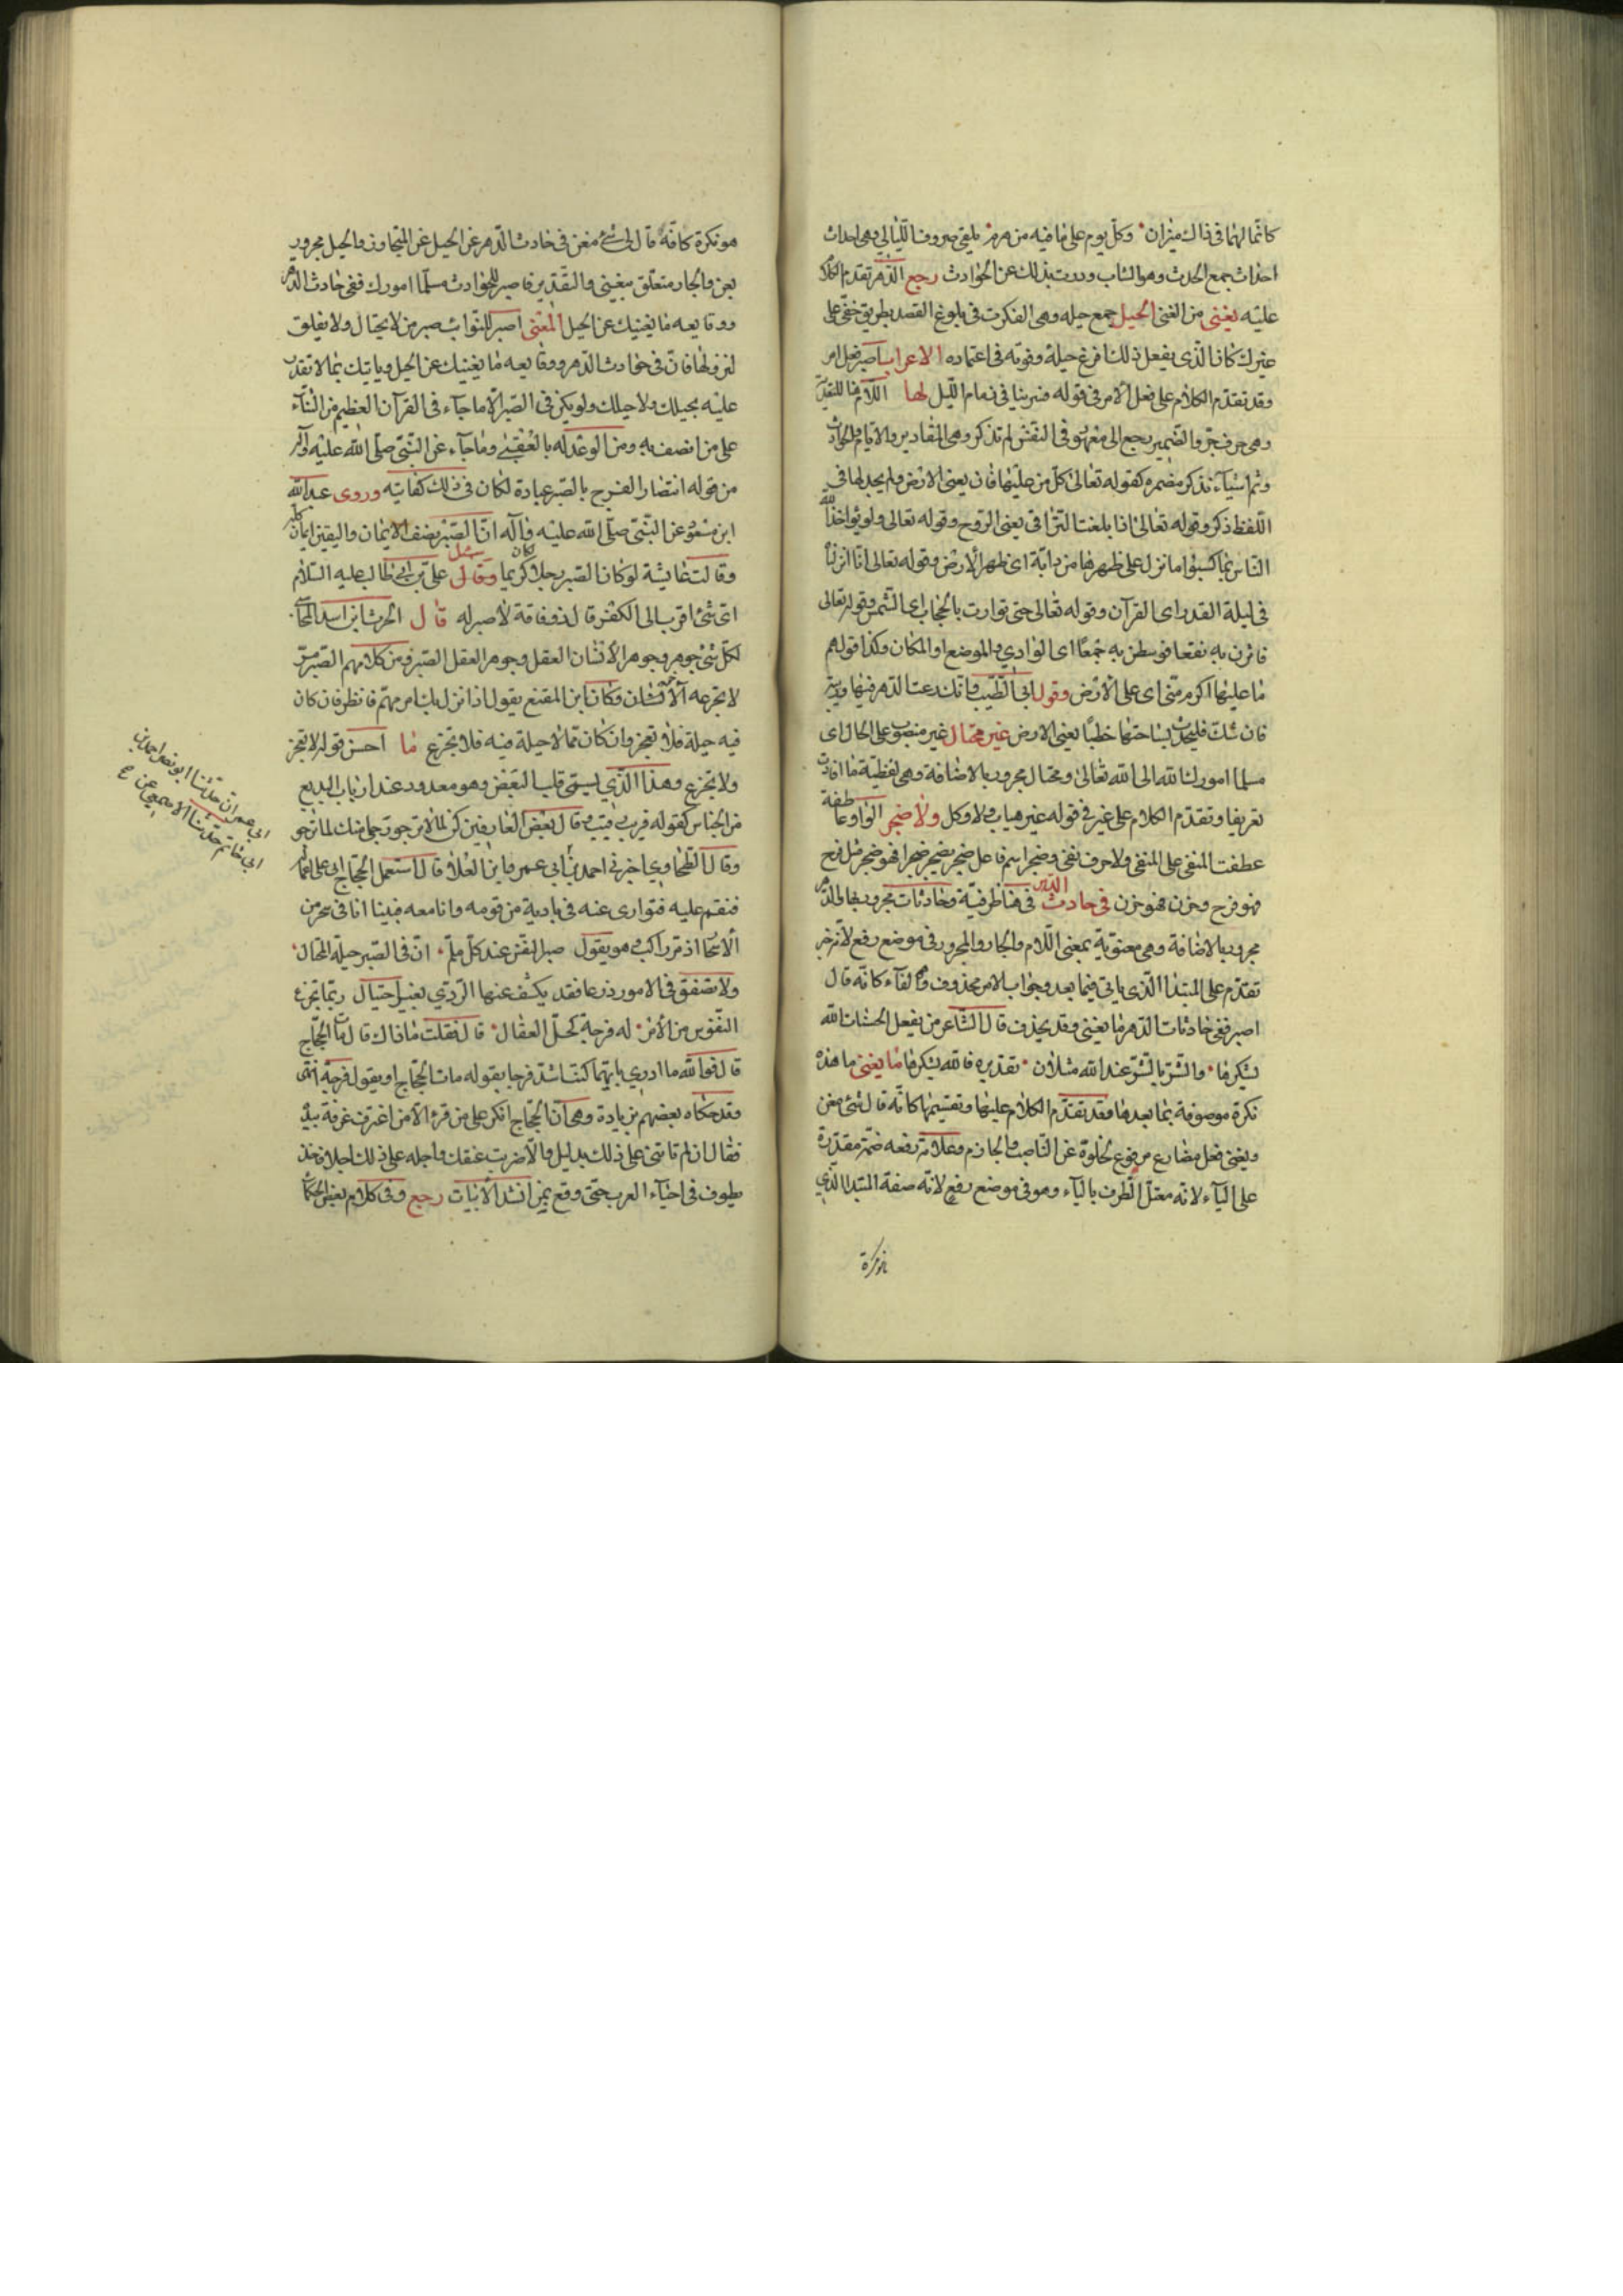 كانما لهما في ذاك ميزان وكل يوم على ما فيه من هرم يلقى صروف الليالي وهي احداث
احداث جمع الحدث وهو الشاب وورت بذلك عن الحوادث رجع الدهر تقدم الكلام
عليه يغني من الغنى الحيل جمع حيله وهي الفكرت في بلوغ القصد بطريق خفي على
غيرك كان الذي يفعل ذلك افرغ حيلة وقوته في اعتماده الاعراب اصبر فعل امر
وقد تقدم الكلام على فعل الامر في قوله فسربنا في ذمام الليل لها اللام هنا للتعدية
وهي حرف جر والضمير يرجع الى معهود في النفس لم تذكر وهي المقادير والايام والحوادث
وثم اشياء تذكر مضمره كقوله تعالى كل من عليها فان يعني الارض ولم يجد لها في
اللفظ ذكر وقوله تعالى اذا بلغت التراقي يعني الروح وقوله تعالى ولو يؤاخذ الله
الناس بما كسبوا ما نزل على ظهرها من دابة اى ظهر الارض وقوله تعالى انا انزلناه
في ليلة القدر اى القرآن وقوله تعالى حتى توارت بالحجاب اى الشمس وقوله تعالى
فاثرن به نقعا فوسطن به جمعا اى الوادي والموضع او المكان وكذا قولهم
ما عليها اكرم منى اى على الارض وقول ابي الطيب فانك دعت الدهر فيها وريبه
فان شك فليحدث بساحتها خطبا يعني الارض غير محتال غير منصوب على الحال اى
مسلما امورك لله الى الله تعالى ومحتال مجرور بالاضافة وهي لفظية ما افادت
تعريفا وتقدم الكلام على غير في قوله غير هياب ولا وكل ولا ضجر الواو عاطفة
عطفت المنفي على المنفي ولا حرف نفي وضجر اسم فاعل ضجر يضجر ضجرا فهو ضجر مثل فرح
فهو فرح وحزن فهو حزن في حادث الدهر في هنا ظرفية وحادثات مجرور بها والدهر
مجرور بالاضافة وهي معنوية بمعنى اللام والجار والمجرور في موضع رفع لانه خبر
تقدم على المبتدا الذي ياتي فيما بعد وجواب الامر محذوف وهو الفاء كانه قال
اصبر ففي حادثات الدهر ما يغني وقد يحذف قال الشاعر من يفعل الحسنات الله
يشكرها والشر بالشر عند الله مثلان تقديره فالله يشكرها ما يغني ما هذه
نكرة موصوفة بما بعدها فقد تقدم الكلام عليها وتقسيمها كانه قال شئ مغن
ويغني فعل مضارع مرفوع لخلوه عن الناصب والجازم وعلامة رفعه ضمة مقدرة
على الياء لانه معتل الطرف بالياء وهو في موضع رفع لانه صفة المبتدا الذي
هو نكرة
هو نكرة كافة قال لى شئ مغن في حادث الدهر عن الحيل عن للتجاوز والحيل مجرور
بعن والجار متعلق بيغني والتقدير فاصبر للحوادث مسلما امورك ففي حادث الدهر
ووقايعه ما يغنيك عن الحيل المعنى اصبر للنوائب صبر من لا يحتال ولا يقلق
لنزولها فان في حوادث الدهر ووقايعه ما يغنيك عن الحيل وياتيك بما لا تقدر
عليه بحيلك ولا حيلك ولو يكن في الصبر الا ما جاء في القرآن العظيم من الثناء
على من اتصف به ومن الوعد له بالعقبى وما جاء عن النبي صلى الله عليه وآله
من قوله انتظار الفرج بالصبر عبادة لكان في ذلك كفاية وروى عبد الله
ابن مسعود عن النبي صلى الله عليه وآله ان الصبر نصف الايمان واليقين ايمان كله
وقالت عايشة لو كان الصبر رجلا كان كريما وقال سئل علي بن ابي طالب عليه السلام
اى شئ اقرب الى الكفر قال ذو فاقة لا صبر له قال الحرث ابن اسد المحاسبي
لكل شئ جوهر وجوهر الانسان العقل وجوهر العقل الصبر ومن كلامهم الصبر مر
لا يتجرعه الا حر الانسان وكان ابن المقنع يقول اذا نزل بك امر مهم فانظر فان كان
فيه حيلة فلا تعجز وان كان مما لا حيلة فيه فلا تجزع ما احسن قوله لا تعجز
ولا تجزع وهذا الذي يسمى قلب البعض وهو معدود عند ارباب البديع
من الجناس كقوله قريب رقيب قال بعض العارفين كن لما لا ترجو ترجى منك لما ترجو
وقال الطحاوي اخبرني احمد بن ابي عمرو ابن العلا قال استعمل الحجاج ابى على اعماله
فنقم عليه فتوارى عنه في بادية من قومه وانا معه فبينا انا في سحر من
الاسحار اذ مر راكب وهو يقول صبر النفس عند كل ملم ان في الصبر حيلة المحتال
ولا تضيقن في الامور ذرعا فقد يكشف عنها الردي بغير احتيال ربما تجزع
النفوس من الامر له فرجة كحل العقال قال فقلت ما ذاك قال مات الحجاج
قال فوالله ما ادري بايهما كنت اشد فرحا بقوله مات الحجاج او بقوله فرجة انتهى
وقد حكاه بعضهم بزيادة وهي ان الحجاج انكر على من قرء الا من اغترف غرفة بيده
فقال ان لم تاتني على ذلك بدليل والا ضربت عنقك واجله على ذلك اجلا فاخذ
يطوف في احياء العرب حتى وقع بمن انشد الابيات رجع وفي كلام بعض الحكماء
ابي عمران حدثنا ابو نصر احمد بن
ابي حاتم حدثنا الاصمعي عن ح